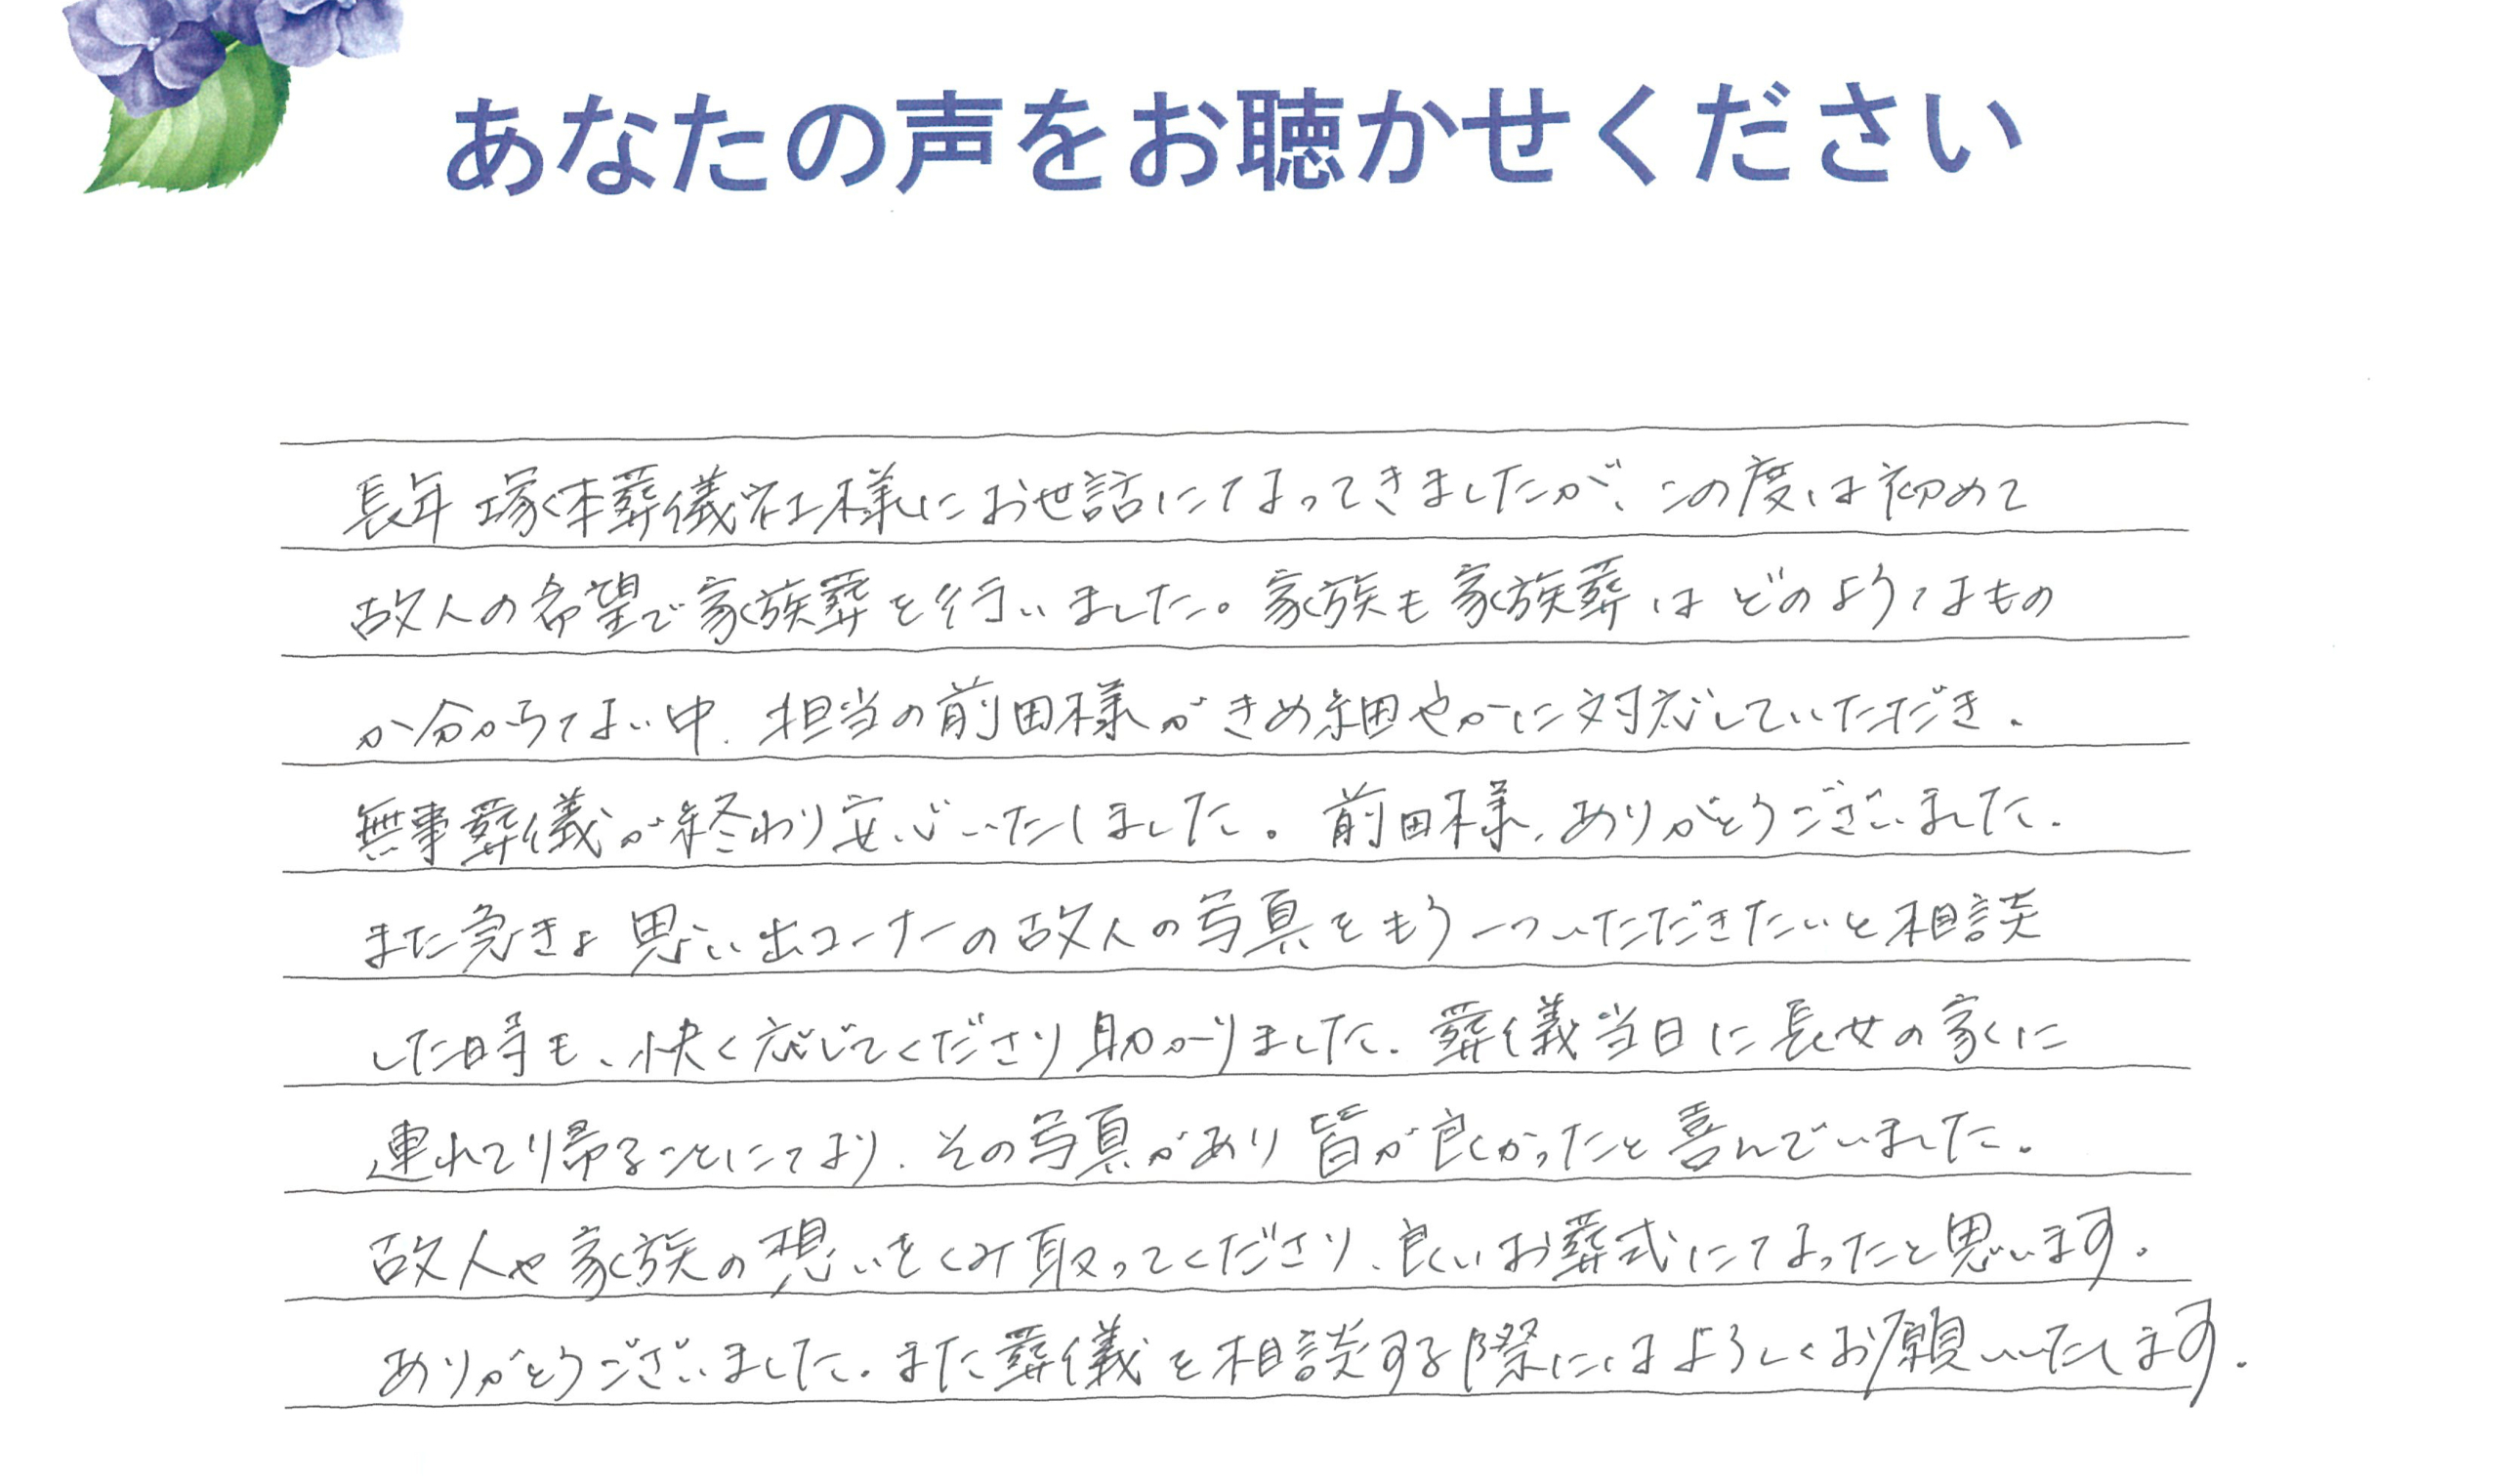 あなたの声をお聴かせください
長年 塚本葬儀社様にお世話になってきましたが、この度は初めて
故人の希望で家族葬を行いました。家族も家族葬はどのようなもの
か分からない中、担当の前田様がきめ細やかに対応していただき、
無事葬儀が終わり安心いたしました。前田様、ありがとうございました。
また急きょ思い出コーナーの故人の写真をもう一ついただきたいと相談
した時も、快く応じてくださり助かりました。葬儀当日に長女の家に
連れて帰ることになり、その写真があり皆が良かったと喜んでいました。
故人や家族の想いをくみ取ってくださり、良いお葬式になったと思います。
ありがとうございました。また葬儀を相談する際にはよろしくお願いいたします。